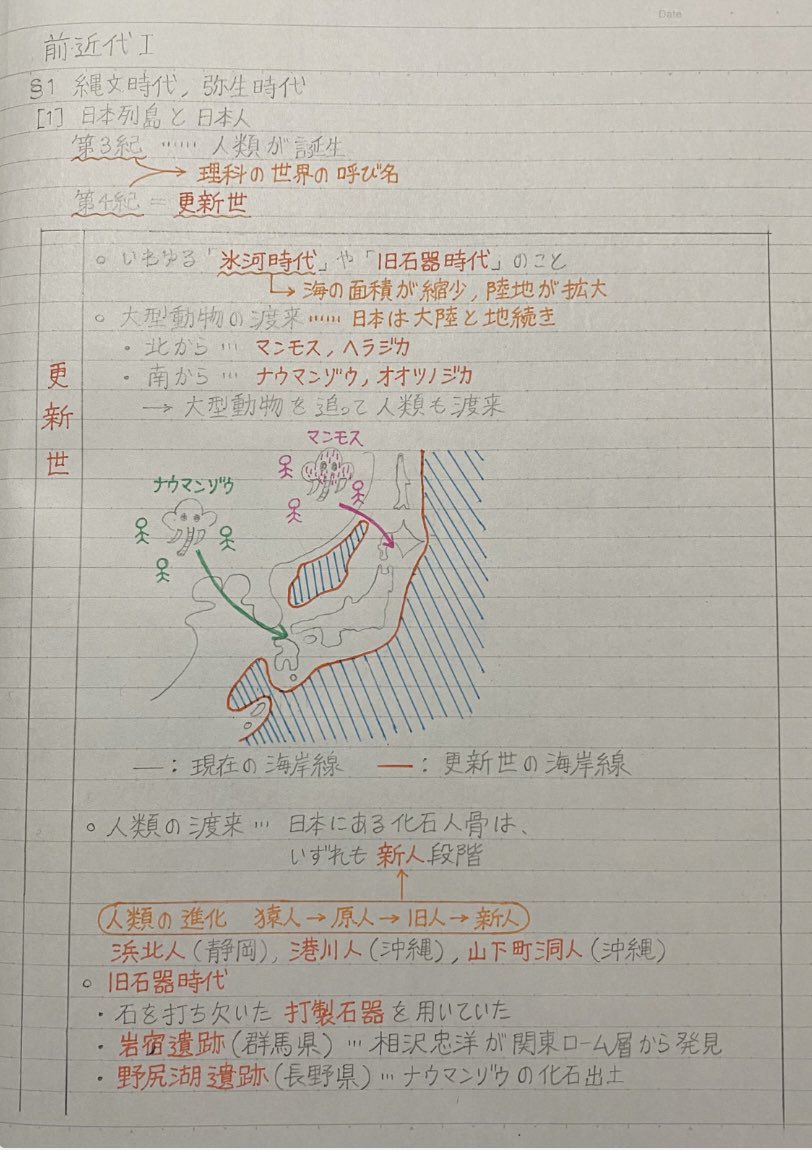 Date
前近代I
§1 縄文時代, 弥生時代
[1] 日本列島と日本人
第3紀 …… 人類が誕生
→ 理科の世界の呼び名
第4紀 = 更新世
更新世
○ いわゆる「氷河時代」や「旧石器時代」のこと
→ 海の面積が縮少, 陸地が拡大
○ 大型動物の渡来 …… 日本は大陸と地続き
・北から … マンモス, ヘラジカ
・南から … ナウマンゾウ, オオツノジカ
→ 大型動物を追って人類も渡来
マンモス
ナウマンゾウ
—: 現在の海岸線 —: 更新世の海岸線
○ 人類の渡来 … 日本にある化石人骨は、
いずれも 新人 段階
↑
人類の進化 猿人→原人→旧人→新人
浜北人(静岡), 港川人(沖縄), 山下町洞人(沖縄)
○ 旧石器時代
・石を打ち欠いた 打製石器を用いていた
・岩宿遺跡(群馬県) … 相沢忠洋が関東ローム層から発見
・野尻湖遺跡(長野県) … ナウマンゾウの化石出土